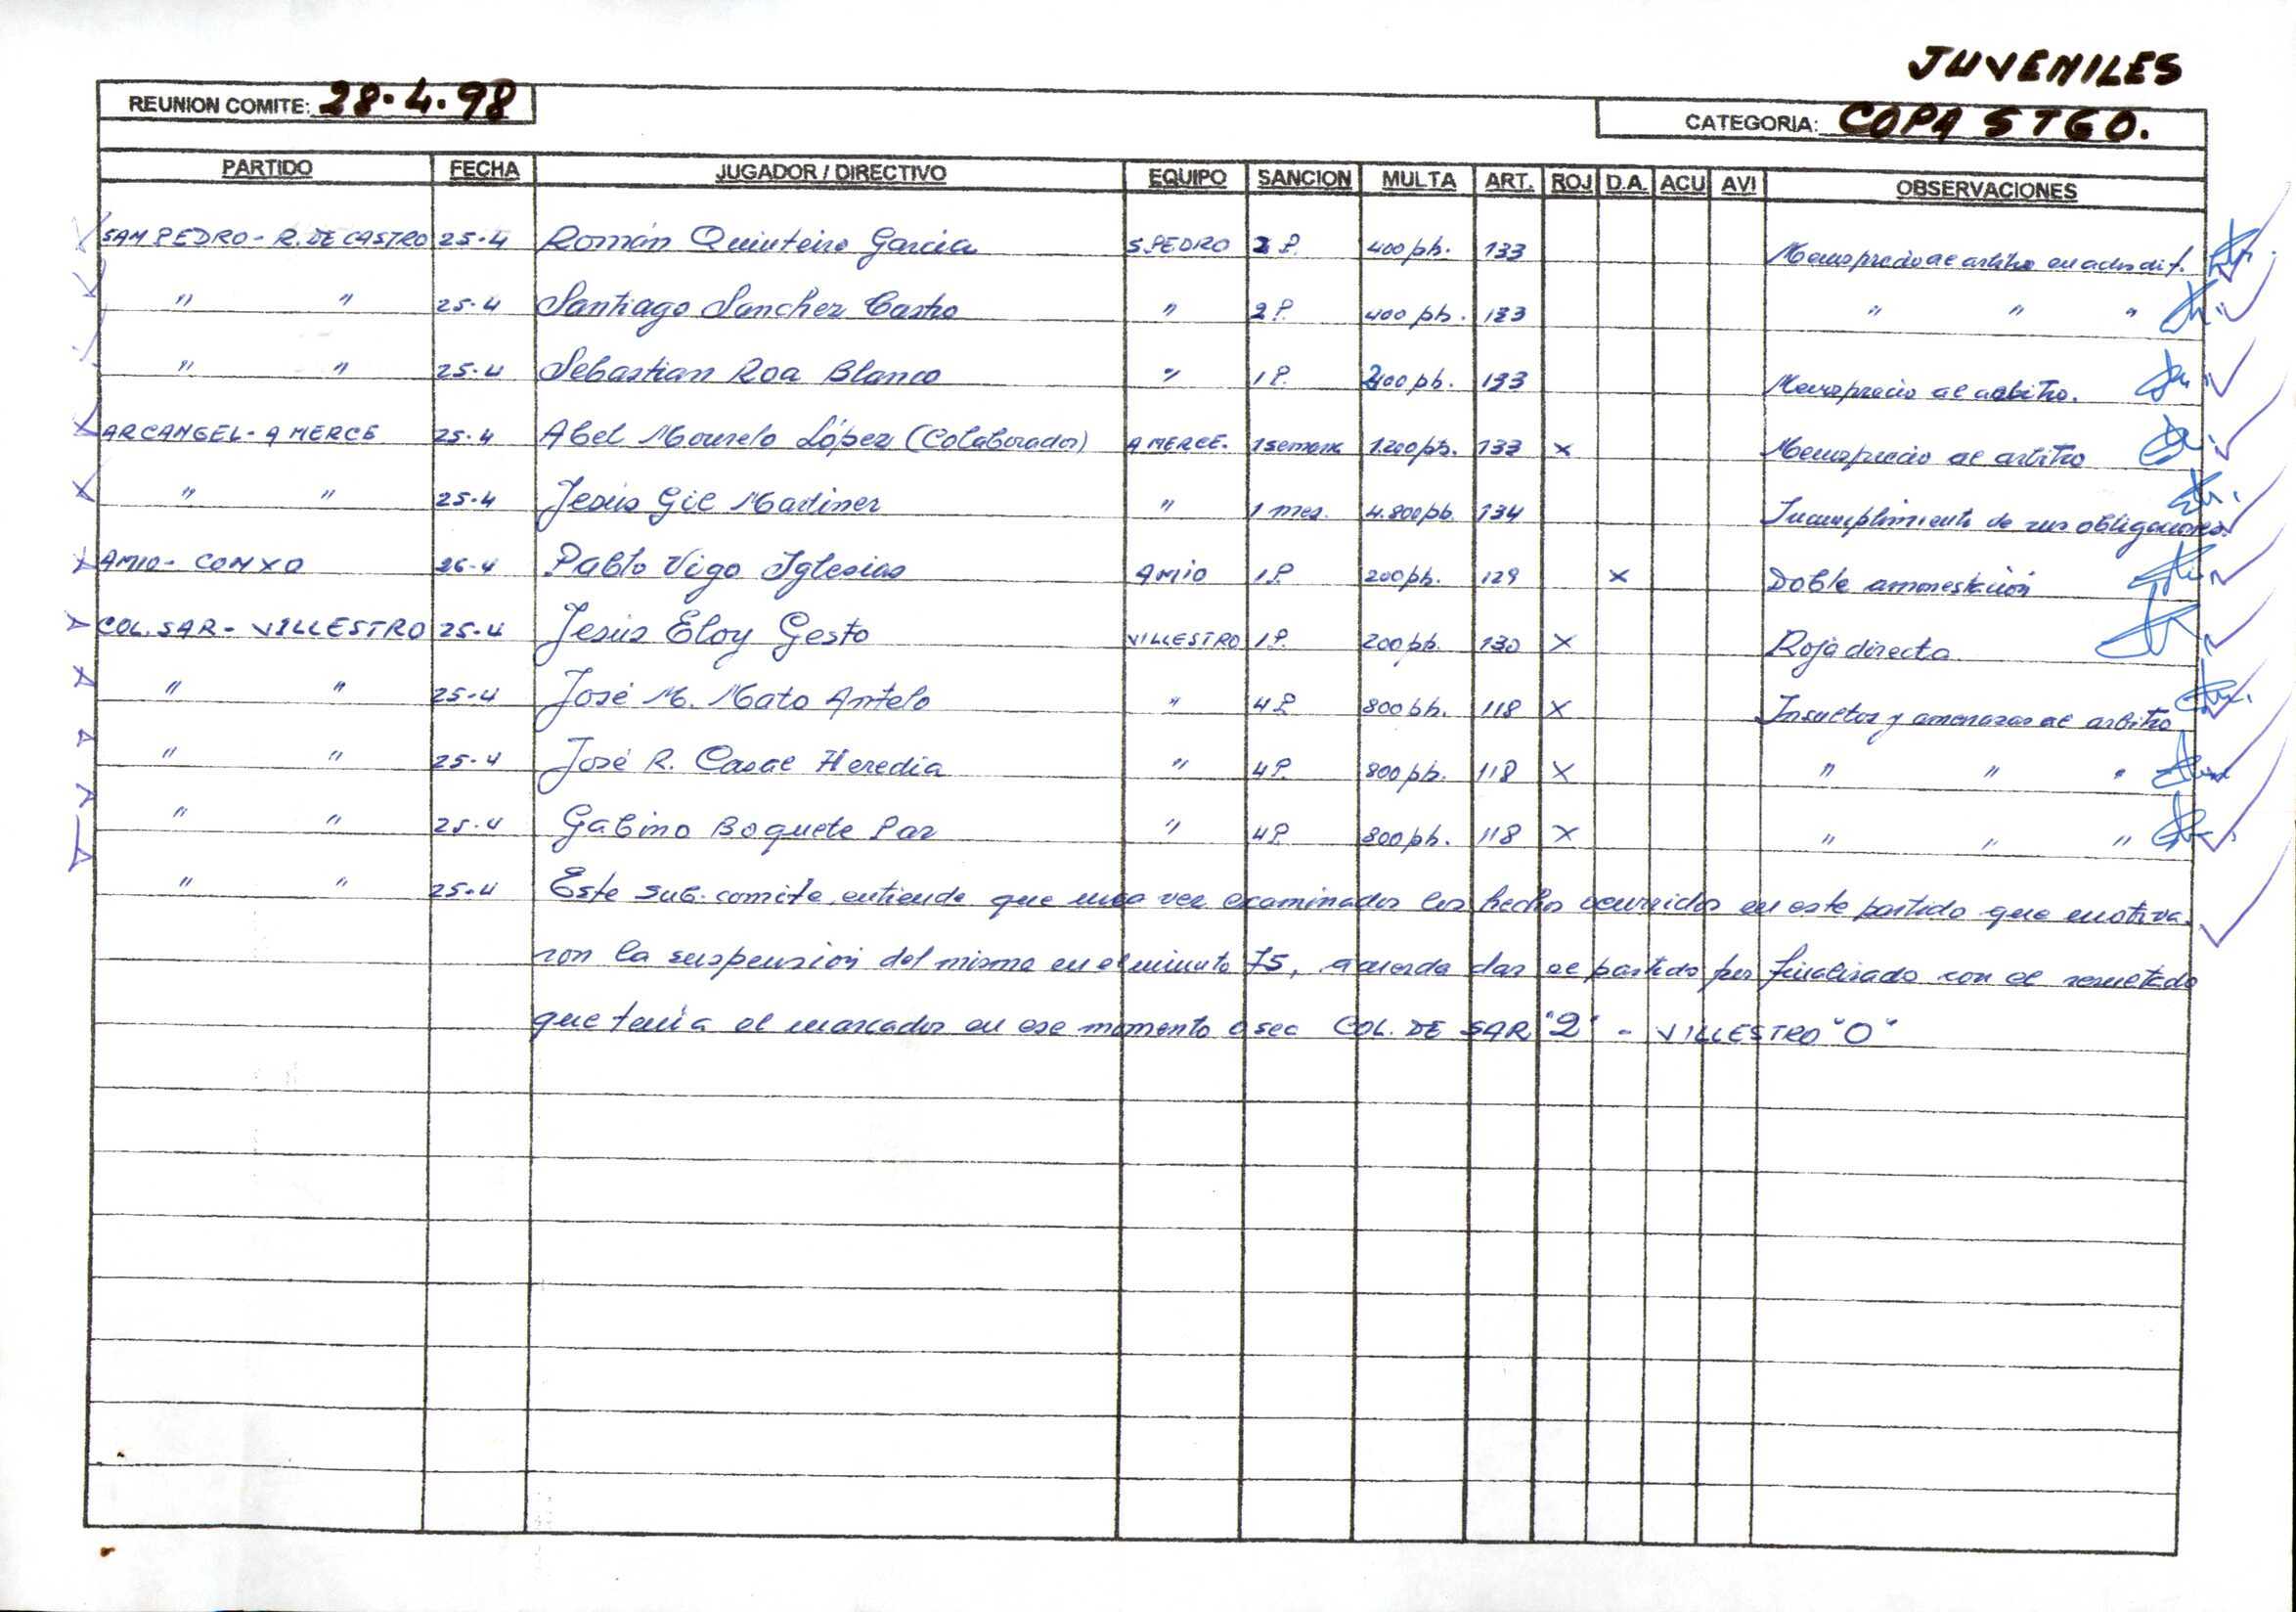 JUVENILES
REUNION COMITE: 28-4-98 CATEGORIA: COPA STGO.
PARTIDO FECHA JUGADOR / DIRECTIVO EQUIPO SANCION MULTA ART. ROJ D.A. ACU AVI OBSERVACIONES
SAN PEDRO - R. DE CASTRO 25-4 Román Quinteiro Garcia S.PEDRO 2 P. 400 pts. 133 Menosprecio al arbitro en acta dif.
" " 25-4 Santiago Sanchez Castro " 2 P. 400 pts. 133 " " "
" " 25-4 Sebastian Roa Blanco " 1 P. 200 pts. 133 Menosprecio al arbitro.
ARCANGEL - A MERCE 25-4 Abel Mourelo López (Colaborador) A MERCE. 1 semana 1.200 pts. 133 X Menosprecio al arbitro
" " 25-4 Jesús Gil Martinez " 1 mes. 4.800 pts. 134 Incumplimiento de sus obligaciones.
AMIO - CONXO 26-4 Pablo Vigo Iglesias AMIO 1 P. 200 pts. 129 X Doble amonestación
COL. SAR - VILLESTRO 25-4 Jesús Eloy Gesto VILLESTRO 1 P. 200 pts. 130 X Roja directa
" " 25-4 José M. Mato Antelo " 4 P. 800 pts. 118 X Insultos y amenazas al arbitro
" " 25-4 José R. Casal Heredia " 4 P. 800 pts. 118 X " " "
" " 25-4 Gabino Boquete Paz " 4 P. 800 pts. 118 X " " "
" " 25-4 Este sub-comite, entiende que una vez examinados los hechos ocurridos en este partido que motiva-
ron la suspensión del mismo en el minuto 75, acuerda dar el partido por finalizado con el resultado
que tenia el marcador en ese momento o sea COL. DE SAR "2" - VILLESTRO "0"